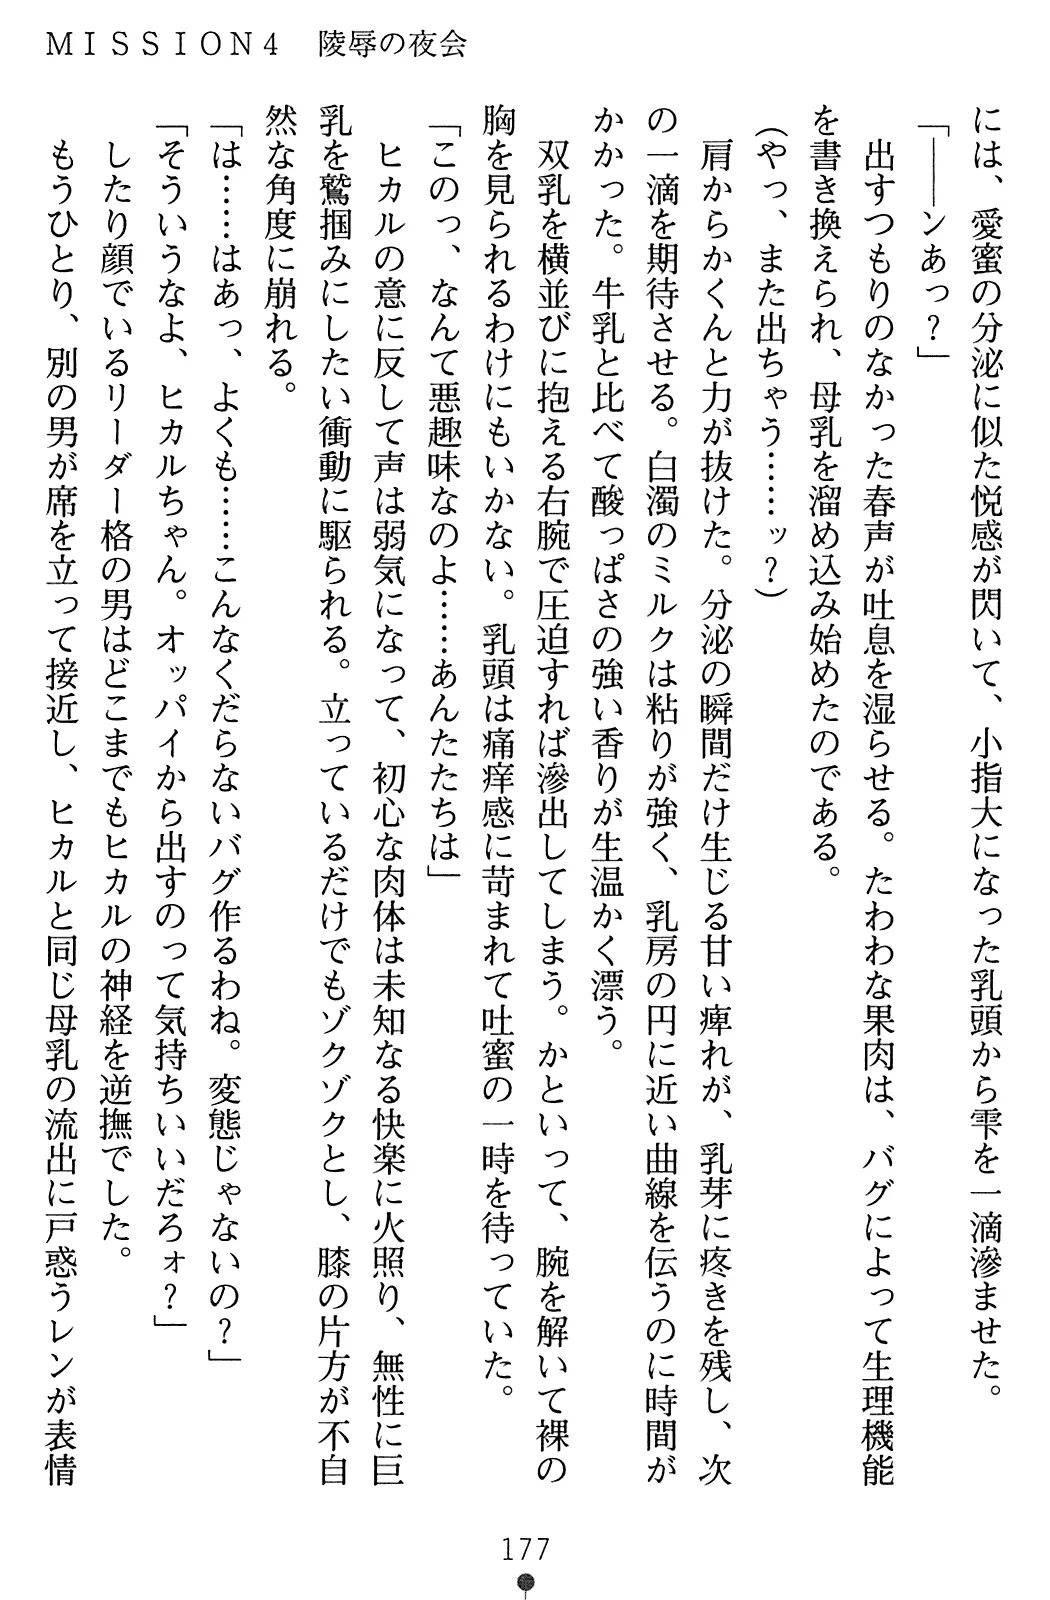 ＭＩＳＳＩＯＮ４　陵辱の夜会
には、愛蜜の分泌に似た悦感が閃いて、小指大になった乳頭から雫を一滴滲ませた。
「――ンあっ？」
　出すつもりのなかった春声が吐息を湿らせる。たわわな果肉は、バグによって生理機能
を書き換えられ、母乳を溜め込み始めたのである。
（やっ、また出ちゃう……ッ？）
　肩からかくんと力が抜けた。分泌の瞬間だけ生じる甘い痺れが、乳芽に疼きを残し、次
の一滴を期待させる。白濁のミルクは粘りが強く、乳房の円に近い曲線を伝うのに時間が
かかった。牛乳と比べて酸っぱさの強い香りが生温かく漂う。
　双乳を横並びに抱える右腕で圧迫すれば滲出してしまう。かといって、腕を解いて裸の
胸を見られるわけにもいかない。乳頭は痛痒感に苛まれて吐蜜の一時を待っていた。
「このっ、なんて悪趣味なのよ……あんたたちは」
　ヒカルの意に反して声は弱気になって、初心な肉体は未知なる快楽に火照り、無性に巨
乳を鷲掴みにしたい衝動に駆られる。立っているだけでもゾクゾクとし、膝の片方が不自
然な角度に崩れる。
「は……はあっ、よくも……こんなくだらないバグ作るわね。変態じゃないの？」
「そういうなよ、ヒカルちゃん。オッパイから出すのって気持ちいいだろォ？」
　したり顔でいるリーダー格の男はどこまでもヒカルの神経を逆撫でした。
　もうひとり、別の男が席を立って接近し、ヒカルと同じ母乳の流出に戸惑うレンが表情
177